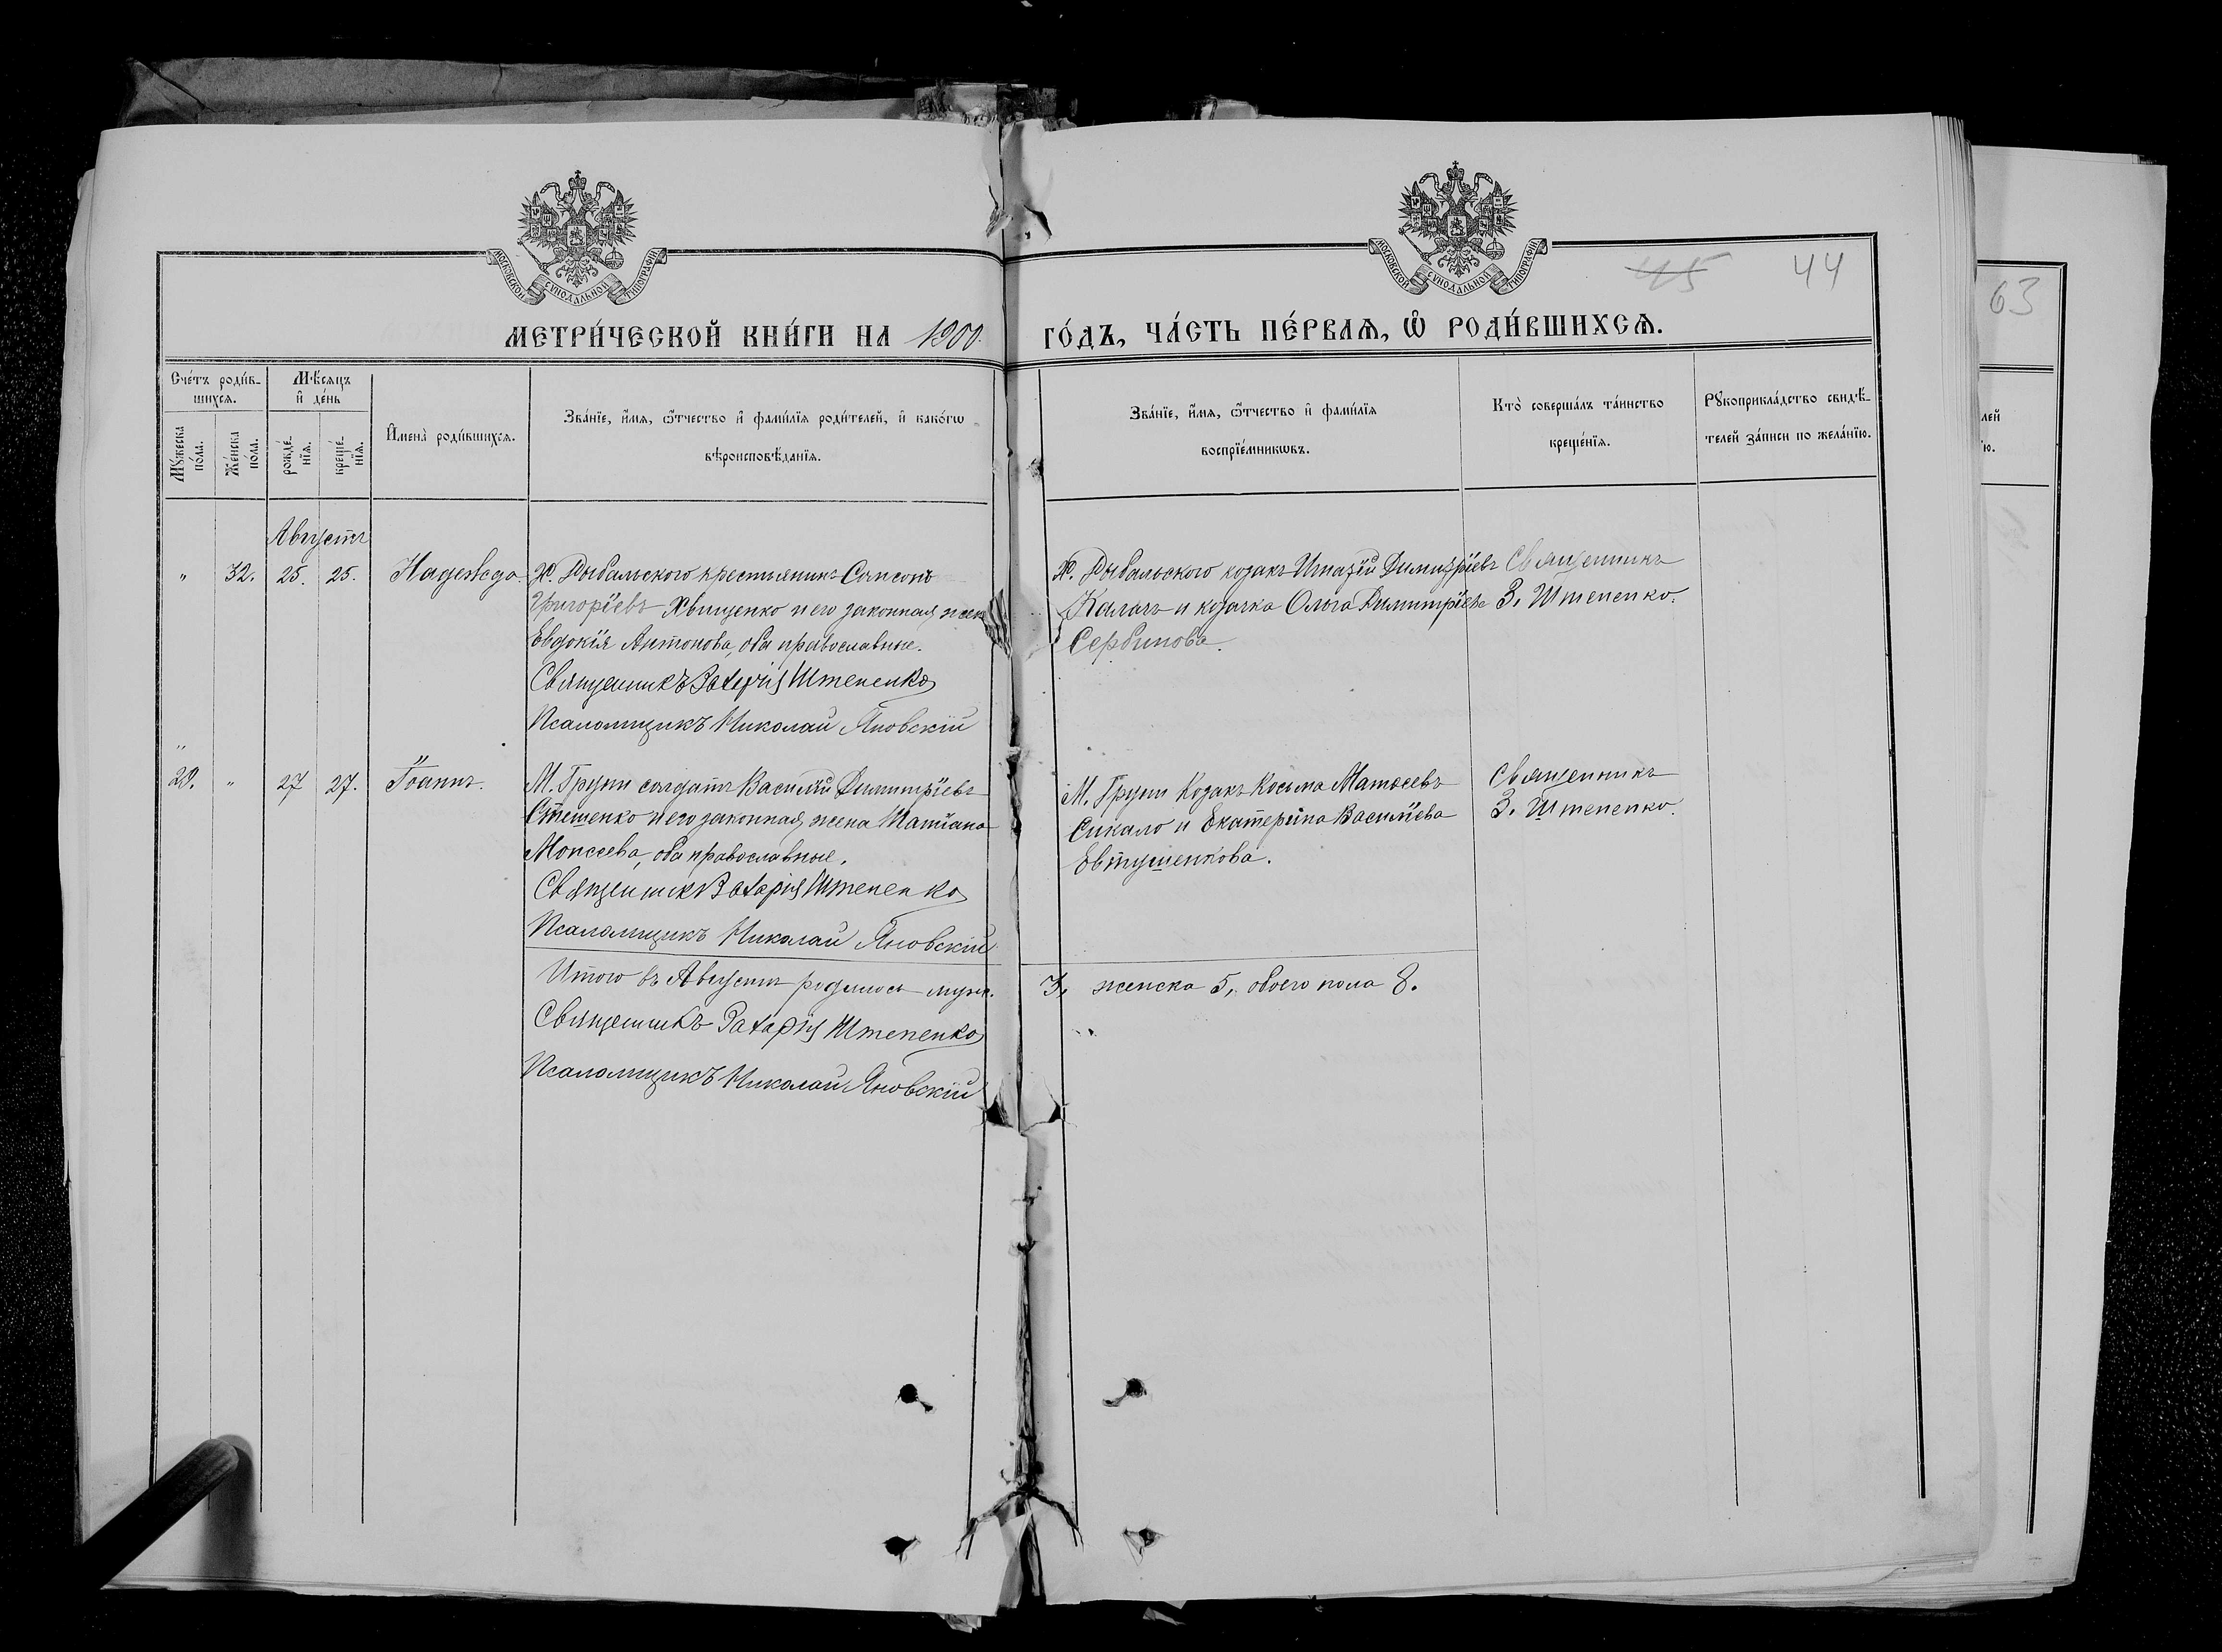 МОСКОВСКОЙ СѴНОДАЛЬНОЙ ТИПОГРАФІИ
МОСКОВСКОЙ СѴНОДАЛЬНОЙ ТИПОГРАФІИ
45 44
63
МЕТРИ́ЧЕСКОЙ КНИ́ГИ НА 1900. ГО́ДЪ, ЧА́СТЬ ПЕ́РВАѦ, Ѡ РОДИ́ВШИХСѦ.
Сче́тъ роди́в-
шихсѧ.
Мꙋ́жеска
по́ла.
Же́нска
по́ла.
Мѣ́сѧцъ
и҆ де́нь
рожде́-
нїѧ.
креще́-
нїѧ.
И҆мена̀ роди́вшихсѧ.
Зва́нїе, и҆́мѧ, ѻ҆́тчество и҆ фами́лїѧ роди́телей, и҆ како́гѡ
вѣроисповѣ́данїѧ.
Зва́нїе, и҆́мѧ, ѻ҆́тчество и҆ фами́лїѧ
воспрїе́мникѡвъ.
Кто̀ соверша́лъ та́инство
креще́нїѧ.
Рꙋкоприкла́дство свидѣ́-
телей за́писи по жела́нїю.
лей
ю.
Августъ
" 32. 25. 25. Надежда.
Х. Рыбальского крестьянинъ Сампсонъ
Григоріевъ Хвищенко и его законная жена
Евдокія Антонова, оба православные.
Священникъ Захарія Штепенко
Псаломщикъ Николай Яновскій
Х. Рыбальского козакъ Игнатій Димитріевъ
Калачъ и козачка Ольга Димитріева
Сербинова.
Священникъ
З. Штепенко.
29. " 27 27. Іоаннъ.
М. Груни солдатъ Василій Димитріевъ
Стешенко и его законная жена Татіана
Моисеева, оба православные.
Священникъ Захарія Штепенко
Псаломщикъ Николай Яновскій
М. Груни Козакъ Косьма Матѳеевъ
Сикало и Екатерина Василіева
Евтушенкова.
Священникъ
З. Штепенко.
Итого въ Августѣ родилось муж. 3, женска 5, обоего пола 8.
Священникъ Захарія Штепенко
Псаломщикъ Николай Яновскій